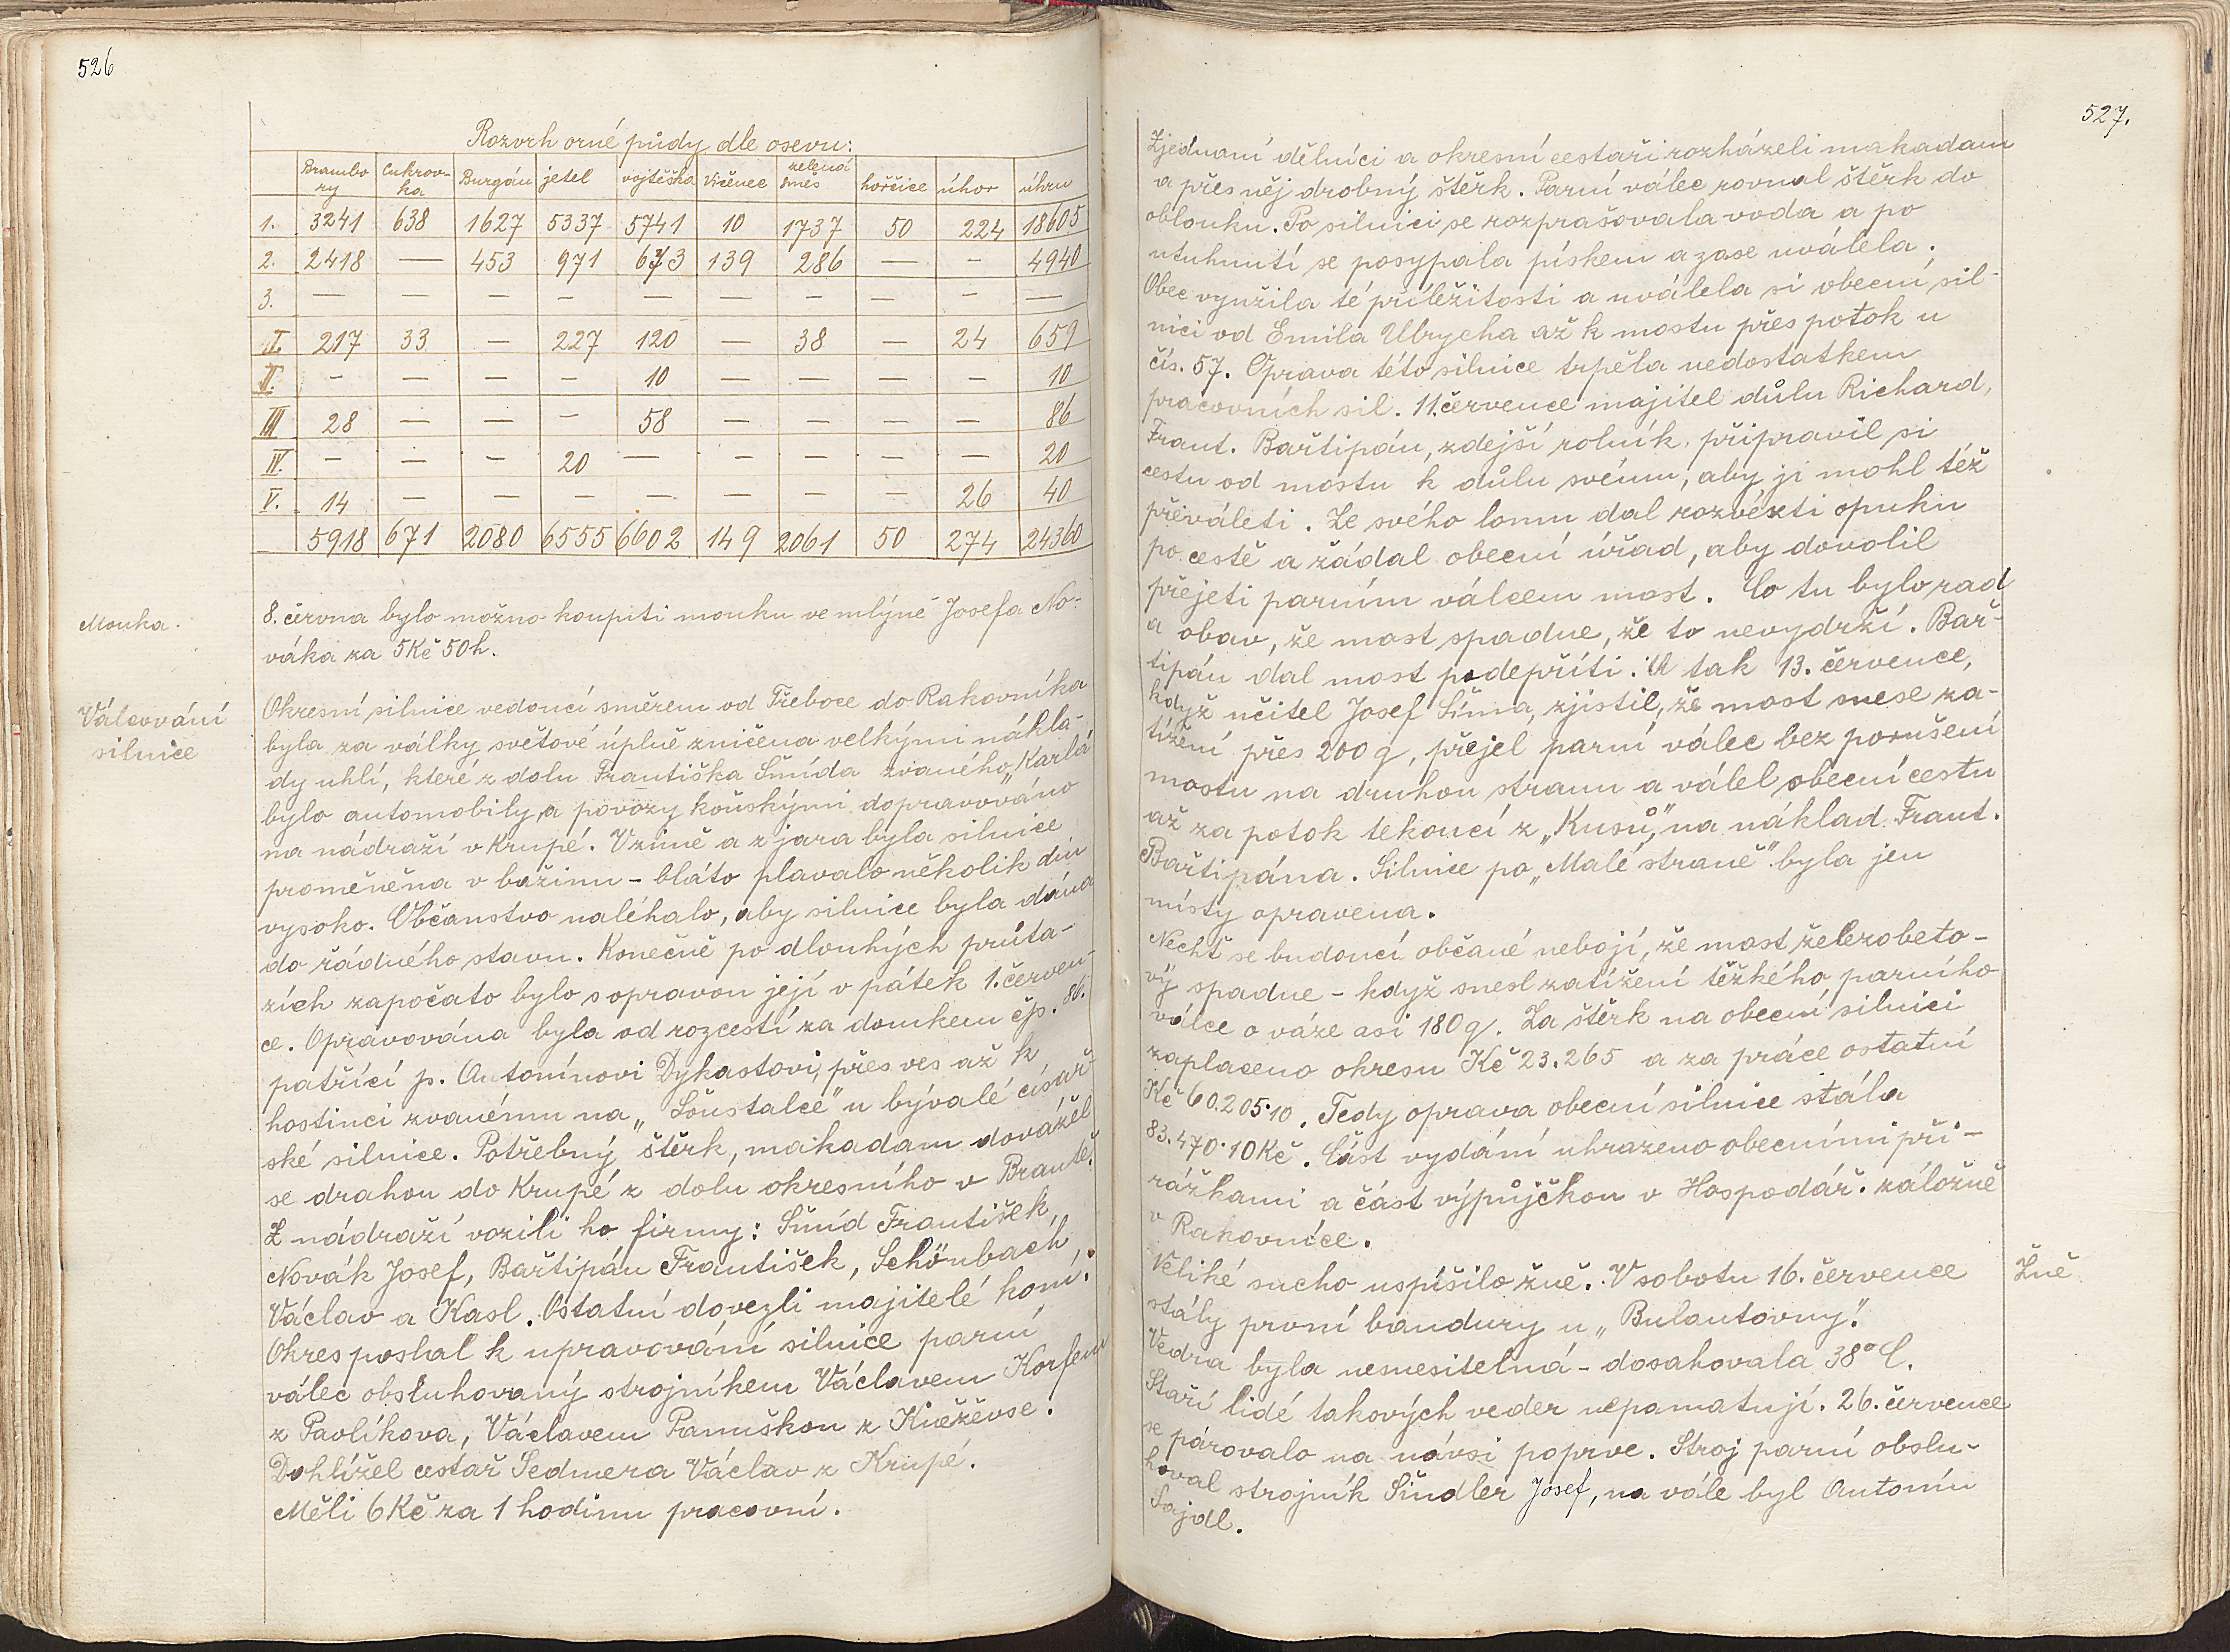 526
Rozvrh orné půdy dle osevu:
Brambory Cukrovka Burgán jetel vojtěška Vičenec zelená směs hořčice úhor úhrn
1. 3241 638 1627 5337 5741 10 1737 50 224 18605
2. 2418 — 453 971 673 139 286 — - 4940
3. — — — — — — — — - —
I. 217 33 — 227 120 — 38 — 24 659
II. - — — — 10 — — — — 10
III 28 — — - 58 — — — — 86
IV. - — - 20 — - - - — 20
V. 14 — — — — — — — 26 40
5918 671 2080 6555 6602 149 2061 50 274 24360
Mouka.
8. června bylo možno koupiti mouku ve mlýně Josefa No-
váka za 5Kč 50h.
Válcování
silnice
Okresní silnice vedoucí směrem od Třeboce do Rakovníka
byla za války světové úplně zničena velkými nákla-
dy uhlí, které z dolu Františka Šmída zvaného „Karla"
bylo automobily a povozy koňskými dopravováno
na nádraží v Krupé. V zimě a z jara byla silnice
proměněna v bažinu - bláto plavalo několik dm
vysoko. Občanstvo naléhalo, aby silnice byla dána
do řádného stavu. Konečně po dlouhých průta-
zích započato bylo s opravou její v pátek 1. červen-
ce. Opravována byla od rozcestí za domkem čp. 86.
patřící p. Antonínovi Dykastovi, přes ves až k
hostinci zvanému na „Šoustalce" u bývalé císař-
ské silnice. Potřebný štěrk, makadam dovážel
se drahou do Krupé z dolu okresního v Brantě.
Z nádraží vozili ho firmy: Šmíd František,
Novák Josef, Bařtipán František, Schönbach
Václav a Kasl. Ostatní dovezli majitelé koní.
Okres poslal k upravování silnice parní
válec obsluhovaný strojníkem Václavem Korfem
z Pavlíkova, Václavem Panuškou z Kněževse.
Dohlížel cestař Sedmera Václav z Krupé.
Měli 6Kč za 1 hodinu pracovní.
527.
Zjednaní dělníci a okresní cestaři rozházeli makadam
a přes něj drobný štěrk. Parní válec rovnal štěrk do
oblouku. Po silnici se rozprašovala voda a po
utuhnutí se posypala pískem a zase uválela.
Obec využila té příležitosti a uválela si obecní sil-
nici od Emila Ulrycha až k mostu přes potok u
čís. 57. Oprava této silnice trpěla nedostatkem
pracovních sil. 11. července majitel důlu Richard,
Frant. Bařtipán, zdejší rolník, připravil si
cestu od mostu k důlu svému, aby ji mohl též
převáleti. Ze svého lomu dal rozvézti opuku
po cestě a žádal obecní úřad, aby dovolil
přejeti parním válcem most. Co tu bylo rad
a obav, že most spadne, že to nevydrží. Bař-
tipán dal most podepříti. A tak 13. července,
když učitel Josef Šíma, zjistil, že most snese za-
tížení přes 200 q, přejel parní válec bez porušení
mostu na druhou stranu a válel obecní cestu
až za potok tekoucí z „Kusů," na náklad Frant.
Bařtipána. Silnice po „Malé straně" byla jen
místy opravena.
Nechť se budoucí občané nebojí, že most železobeto-
vý spadne - když snesl zatížení těžkého parního
válce o váze asi 180 q. Za štěrk na obecní silnici
zaplaceno okresu Kč 23.265 a za práce ostatní
Kč 60.205·10. Tedy oprava obecní silnice stála
83.470·10Kč. Část vydání uhrazeno obecními při-
rážkami a část výpůjčkou v Hospodář. záložně
v Rakovníce.
Žně
Veliké sucho uspíšilo žně. V sobotu 16. července
stály první bandury u „Bulantovny".
Vedra byla nesnesitelná - dosahovala 38° C.
Staří lidé takových veder nepamatují. 26. července
se párovalo na návsi poprve. Stroj parní obslu-
hoval strojník Šindler Josef, na vále byl Antonín
Šajdl.